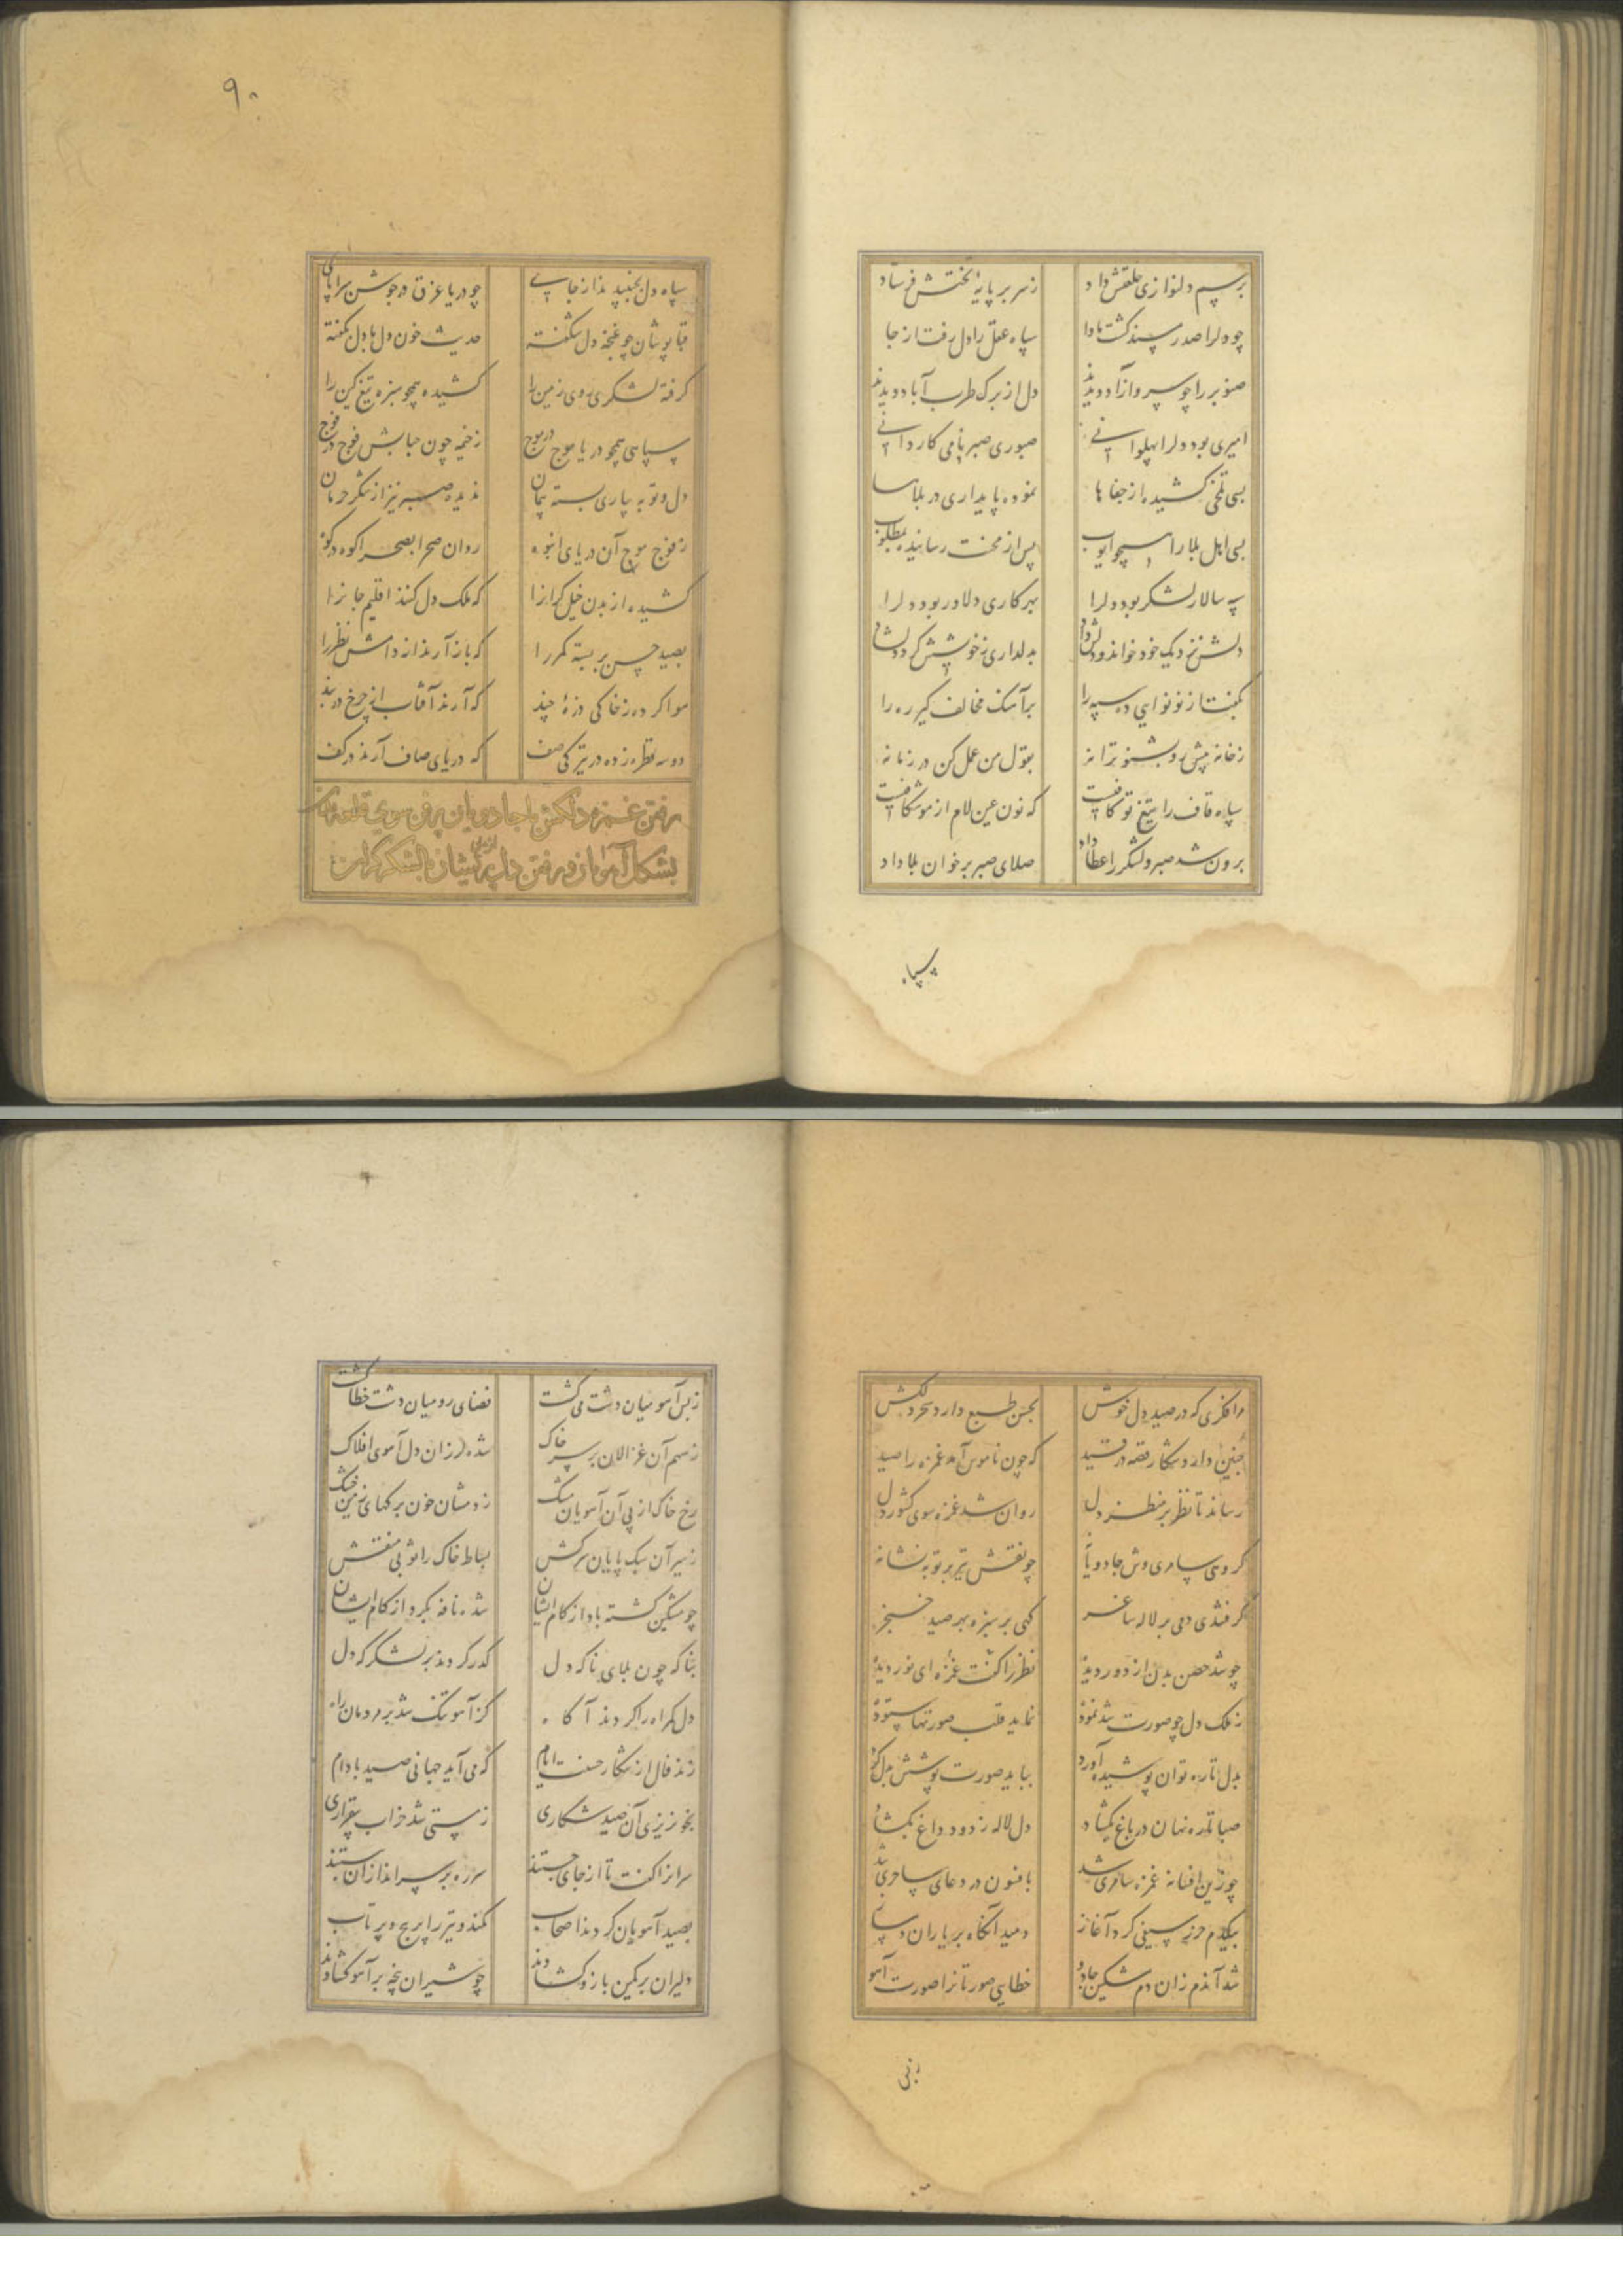 برسم دلنوازی خلعتش داد زسر بر پایهٔ تختش فرستاد
چو دلرا صدر سینه گشت ماوا سپاه عقل را دل رفت از جا
صنوبر را چو سرو آزاد دیدند دل از برک طرب آباد دیدند
امیری بود دلرا پهلوانی صبوری صبر نامی کاردانی
بسی تلخی کشیده از جفاها نموده پایداری در بلاها
بسی اهل بلا را همچو ایوب پس از محنت رسانیده بمطلوب
سپه سالار لشکر بود دلرا بهر کاری دلاور بود دلرا
دلش نزدیک خود خواند و بدلداری زخویشش کرد دلشاد
بگفتا از نو نوایی ده سپه را برآهنگ مخالف گیر ره را
زخانه پیش رو بشنو ترانه بقول من عمل کن در زمانه
سپاه قاف را تیغ تو کافیست که نون عین لام از موشکافیست
برون شد صبر و لشکر را عطا داد صلای صبر بر خوان بلا داد
سپاه
۹۰
سپاه دل بجنبیدند از جای چو دریا غرق در جوشن سراپای
قباپوشان چو غنچه دل شکفته حدیث خون دل با دل نگفته
گرفته لشکری روی زمین را کشیده همچو سبزه تیغ کین را
سپاهی همچو دریا موج در موج زخیمه چون حبابش فوج در فوج
دل و توبه بیاری بسته پیمان ندیده صبر نیز از لشکر حرمان
زفوج موج آن دریای انبوه روان صحرا بصحرا کوه در کوه
کشیده از بدن خیل گرانرا که ملک دل کنند اقلیم جانرا
بصید حسن بر بسته کمر را که باز آرند از دامش نظر را
هوا کرده زخاکی ذرهٔ چند که آرند آفتاب از چرخ در بند
دو سه قطره زده در تیرگی صف که دریای صاف آرند در کف
رفتن غمزه دلکش با جادویان پرفن سوی قلعه بدن
بشکل آهوان و رفتن دل از پی ایشان با لشکر گران
مرا فکری که در صید دل خوش بحسن طبع دارد سحر دلکش
چنین دارد شکار قصه در قید که چون ناموس آمد غمزه را صید
رساند تا نظر بر منظر دل روان شد غمزه سوی کشور دل
گروهی سامری وش جادویانه چو نقش تیر بر توبه نشانه
گرفتندی دمی بر لاله ساغر گهی بر سبزه بهر صید خنجر
چو شد حصن بدن از دور دیده نظر را گفت غمزه ای نور دیده
زملک دل چو صورت شد نموده نماید قلب صورتها ستوده
بدل تا ره توان پوشیده آورد بباید صورت پوشش بدل کرد
صبا تا ره نهان در باغ بگشاد دل لاله ز دود داغ بگشاد
چو زین افسانه غمزه سامری شد بافسون در دعای ساحری شد
بیکدم حرز سیفی کرد آغاز دمید آنگاه بر یاران
شد آندم زان دم مشکین جادو خطایی صورتانرا صورت آهو
زبس
زبس آهو میان دشت می گشت فضای رومیان دشت خطا گشت
زسم آن غزالان بر سر خاک شده لرزان دل آهوی افلاک
رخ خاک از پی آن آهویان مشک زدمشان خون برگهای زمین خشک
زسیر آن سبک پایان سرکش بساط خاک را موبی منقش
چو مشکین گشته باد از کام ایشان شده نافه بگرد از کام ایشان
بناگه چون بلای ناگه دل گذر کردند بر لشکرگه دل
دل گمراه را کردند آگاه کز آهو تنگ شد بر مردمان راه
زند فال از شکار حسنت ایام که می آید جهانی صید با دام
بخونریزی آن صید شکاری زمستی شد خراب بیقراری
سرانرا گفت تا از جای جستند سر ره بر سراندازان ببستند
بصید آهویان کردند اصحاب کمند و تیر را پر پیچ و پرتاب
دلیران بر کمین بازو گشادند چو شیران پنجه بر آهو گشادند